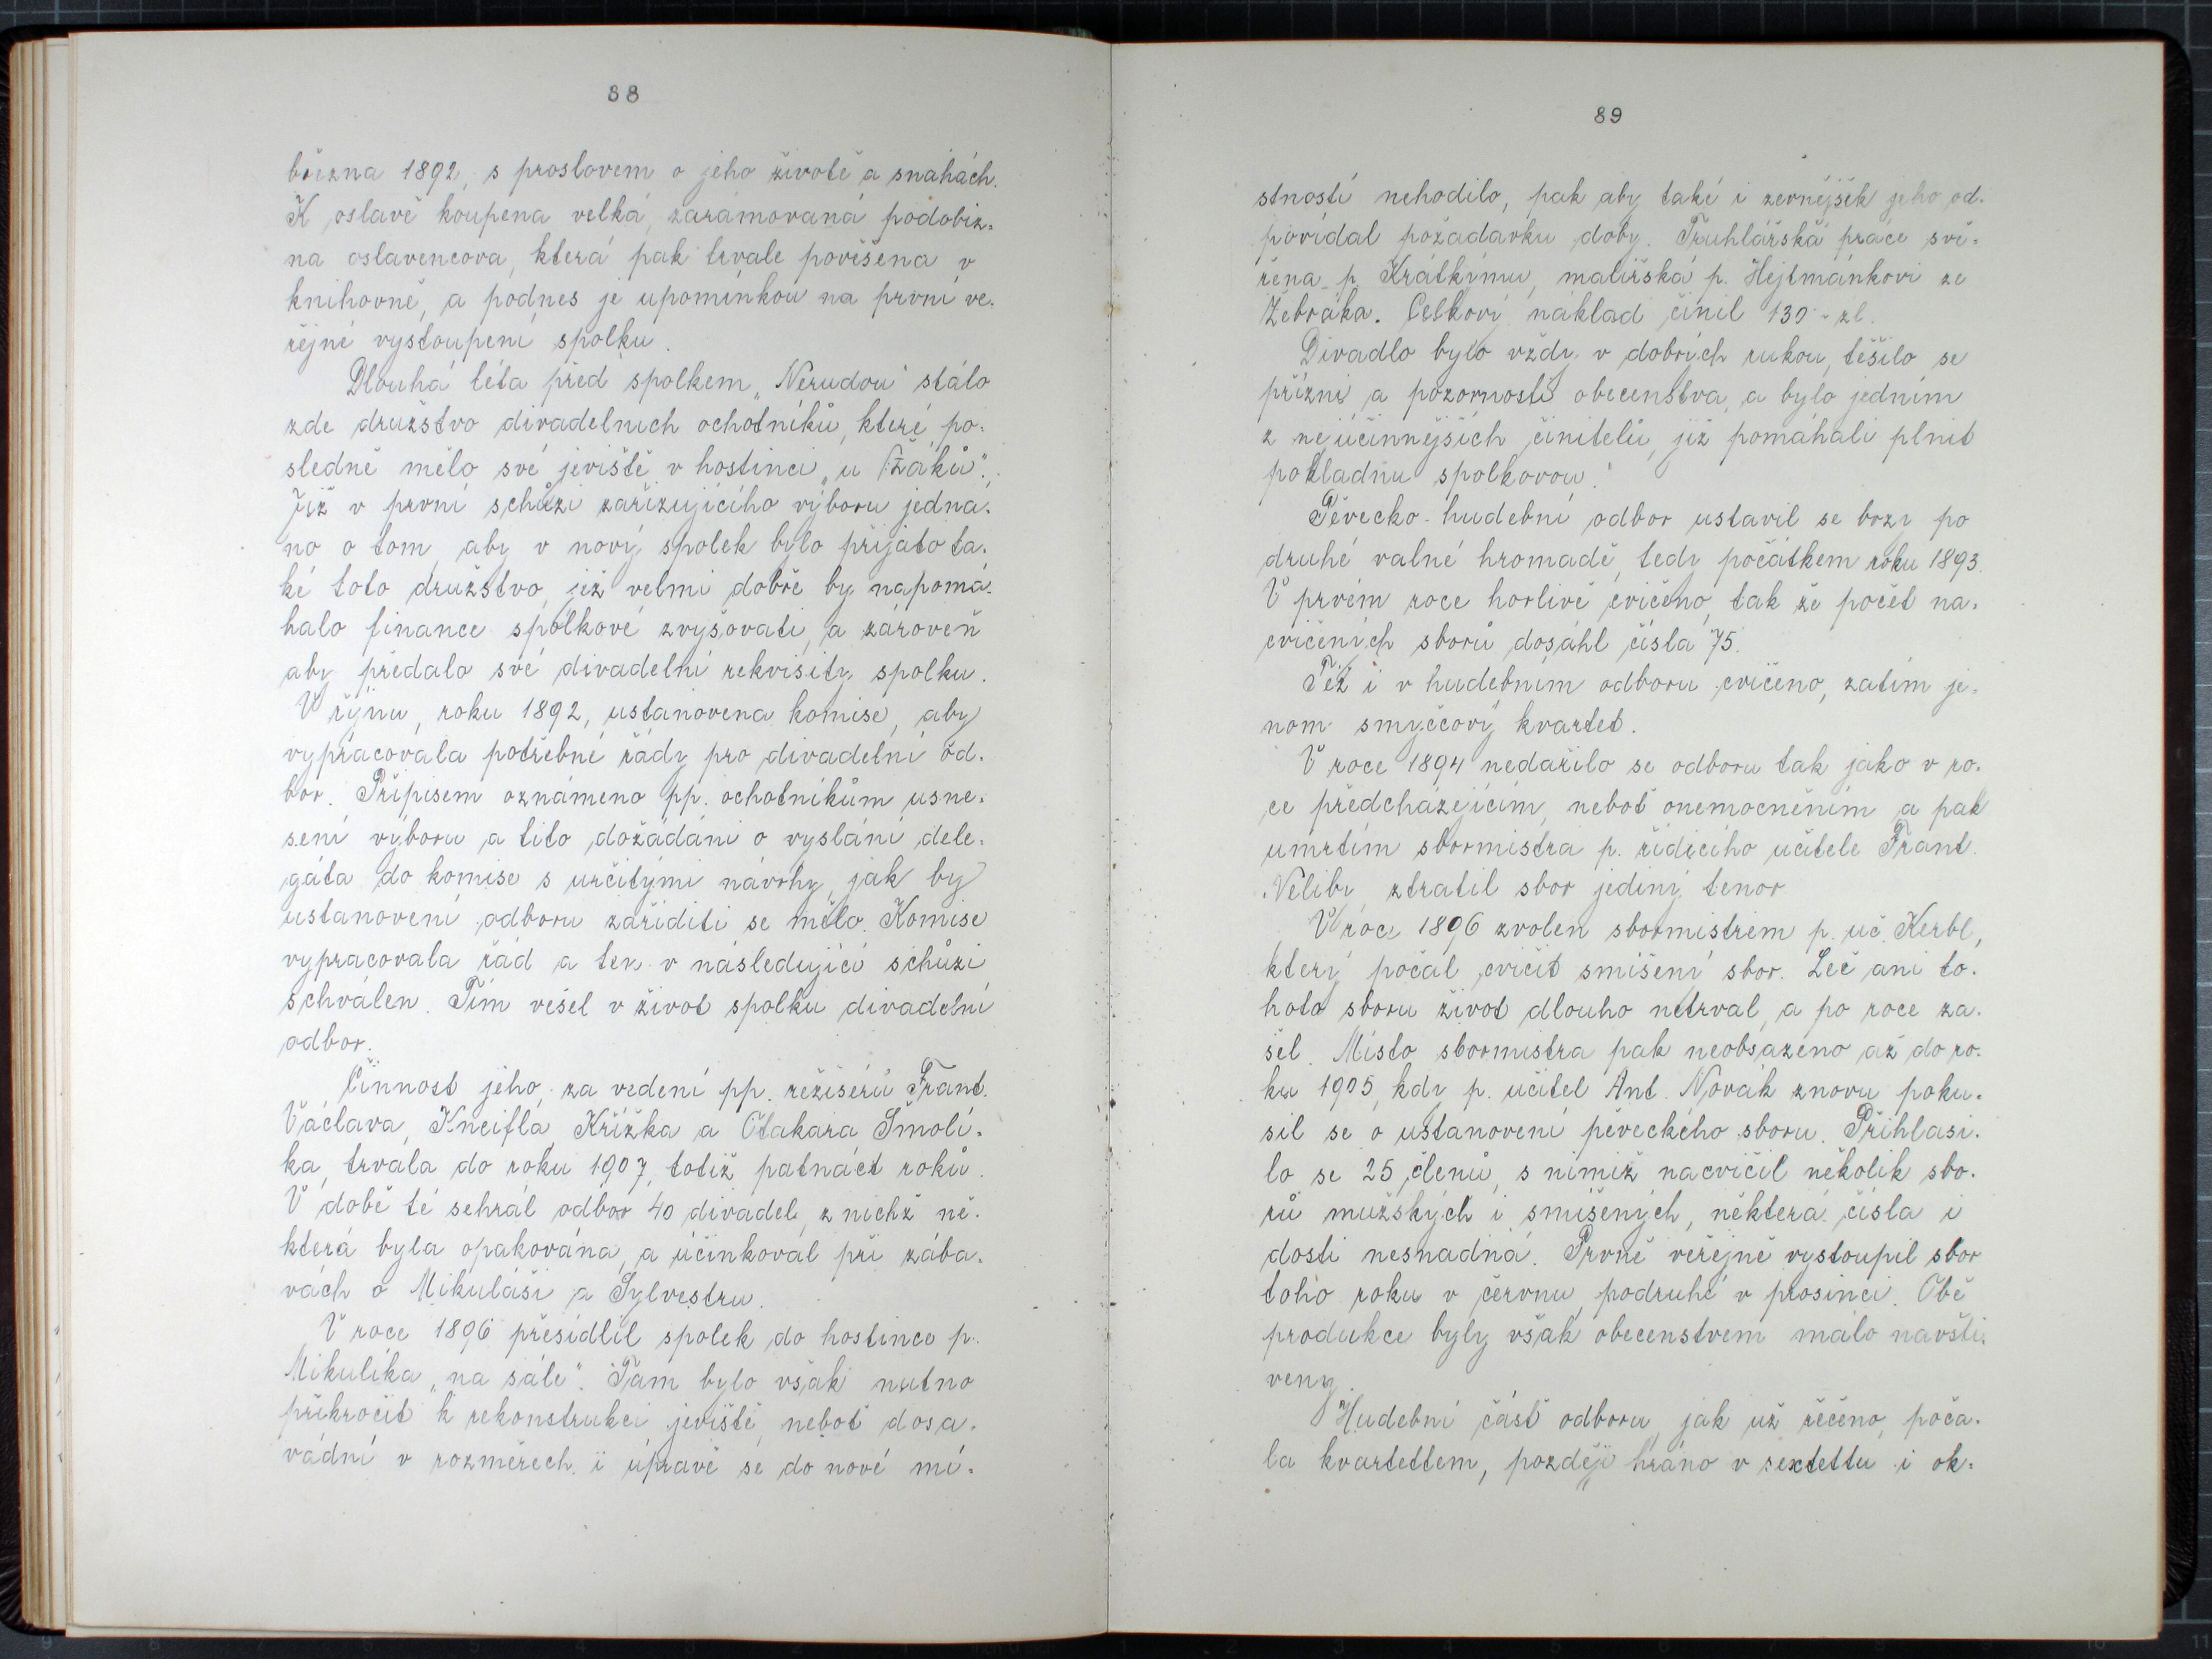 88
března 1892, s proslovem o jeho životě a snahách.
K oslavě koupena velká, zarámovaná podobiz-
na oslavencova, která pak trvale pověšena v
knihovně, a podnes je upomínkou na první ve-
řejné vystoupení spolku.
Dlouhá léta před spolkem „Nerudou" stálo
zde družstvo divadelních ochotníků, které po-
sledně mělo své jeviště v hostinci „u Žáků".
Již v první schůzi zařizujícího výboru jedná-
no o tom, aby v nový spolek bylo přijato ta-
ké toto družstvo, jež velmi dobře by napomá-
halo finance spolkové zvyšovati, a zároveň
aby předalo své divadelní rekvisity spolku.
V říjnu, roku 1892, ustanovena komise, aby
vypracovala potřebné řády pro divadelní od-
bor. Přípisem oznámeno pp. ochotníkům usne-
sení výboru a tito dožádáni o vyslání dele-
gáta do komise s určitými návrhy, jak by
ustanovení odboru zaříditi se mělo. Komise
vypracovala řád a ten v následující schůzi
schválen. Tím vešel v život spolku divadelní
odbor.
Činnost jeho, za vedení pp. režisérů Frant.
Václava, Kneifla, Křížka a Otakara Smolí-
ka, trvala do roku 1907, totiž patnáct roků.
V době té sehrál odbor 40 divadel, z nichž ně-
která byla opakována, a účinkoval při zába-
vách o Mikuláši a Sylvestru.
V roce 1896 přesídlil spolek do hostince p.
Mikulíka „na sále". Tam bylo však nutno
přikročit k rekonstrukci jeviště, neboť dosa-
vádní v rozměrech i úpravě se do nové mí-
89
stnosti nehodilo, pak aby také i zevnějšek jeho od-
povídal požadavku doby. Truhlářská práce svě-
řena p. Krátkýmu, malířská p. Hejtmánkovi ze
Žebráka. Celkový náklad činil 130 - zl.
Divadlo bylo vždy v dobrých rukou, těšilo se
přízni a pozornosti obecenstva, a bylo jedním
z nejúčinnějších činitelů, již pomáhali plnit
pokladnu spolkovou.
Pěvecko-hudební odbor ustavil se brzy po
druhé valné hromadě, tedy počátkem roku 1893.
V prvém roce horlivě cvičeno, tak že počet na-
cvičených sborů dosáhl čísla 75.
Též i v hudebním odboru cvičeno, zatím je-
nom smyčcový kvartet.
V roce 1894 nedařilo se odboru tak jako v ro-
ce předcházejícím, neboť onemocněním a pak
úmrtím sbormistra p. řídícího učitele Frant.
Veliby, ztratil sbor jediný tenor
V roce 1896 zvolen sbormistrem p. uč. Kerbl,
který počal cvičit smíšený sbor. Leč ani to-
hoto sboru život dlouho netrval, a po roce za-
šel. Místo sbormistra pak neobsazeno až do ro-
ku 1905, kdy p. učitel Ant. Novák znovu poku-
sil se o ustanovení pěveckého sboru. Přihlási-
lo se 25 členů, s nimiž nacvičil několik sbo-
rů mužských i smíšených, některá čísla i
dosti nesnadná. Prvně veřejně vystoupil sbor
toho roku v červnu, podruhé v prosinci. Obě
produkce byly však obecenstvem málo navští-
veny.
Hudební část odboru, jak už řečeno, poča-
la kvartettem, později hráno v sextettu i ok-